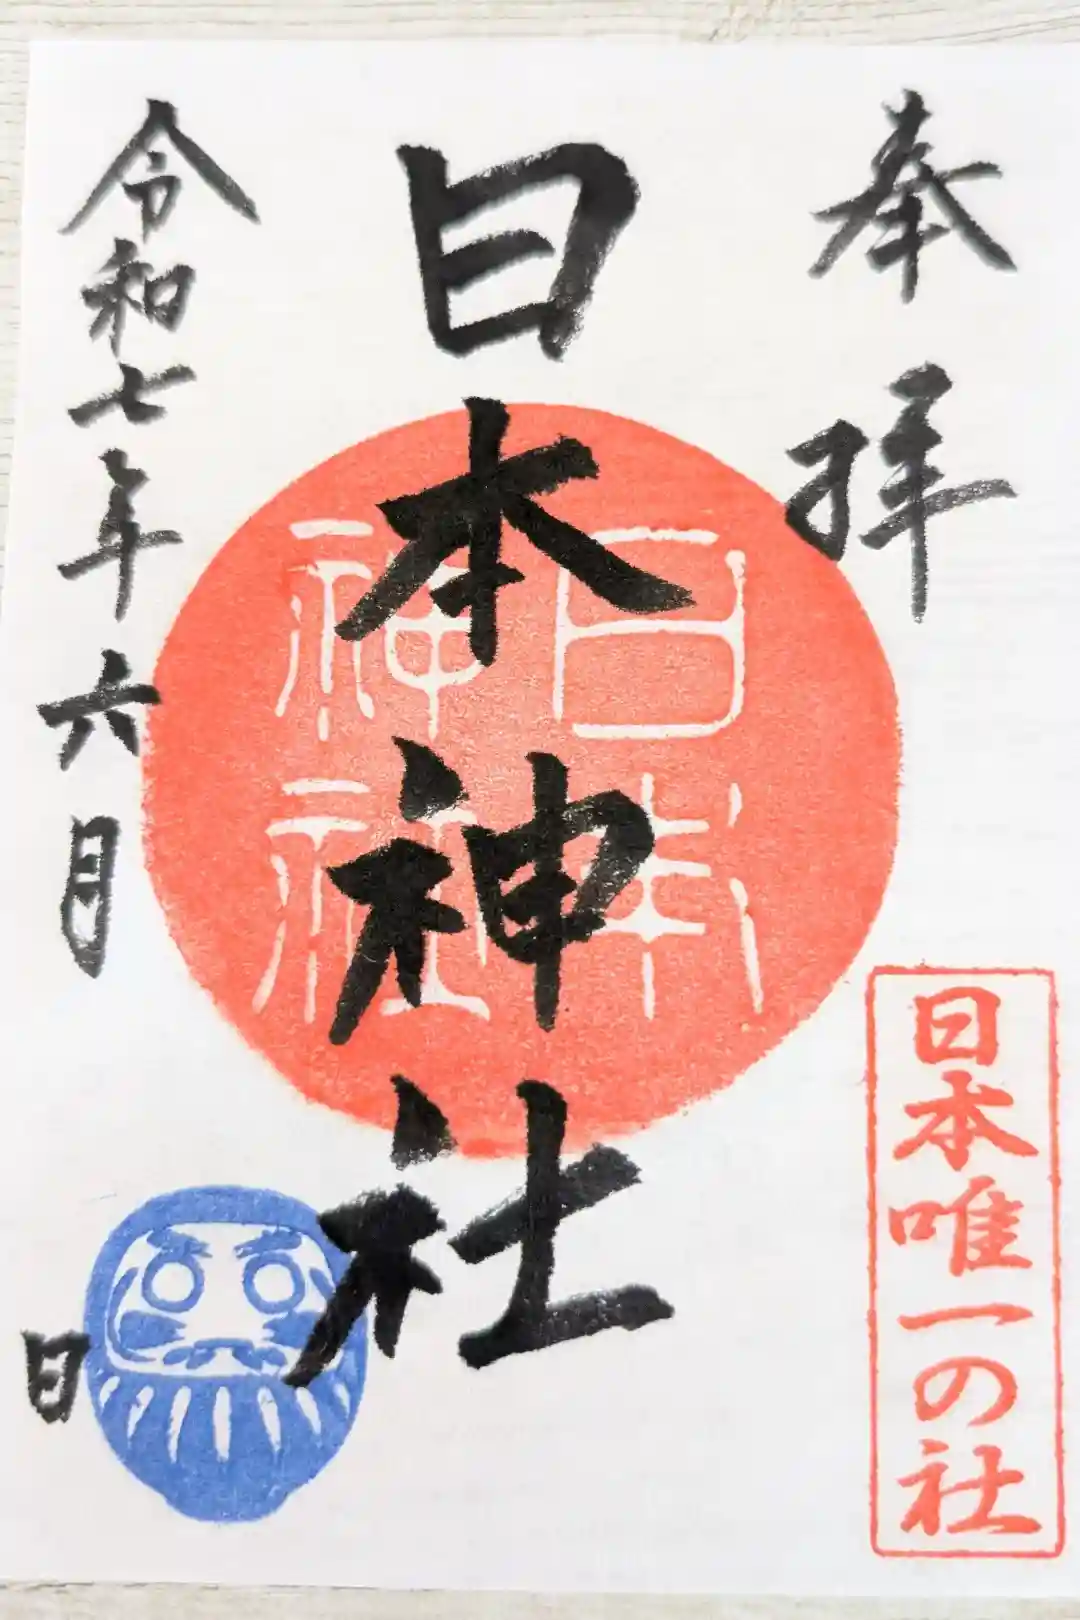 奉拝
日本唯一の社
日本神社
日本
神社
令和七年六月 日